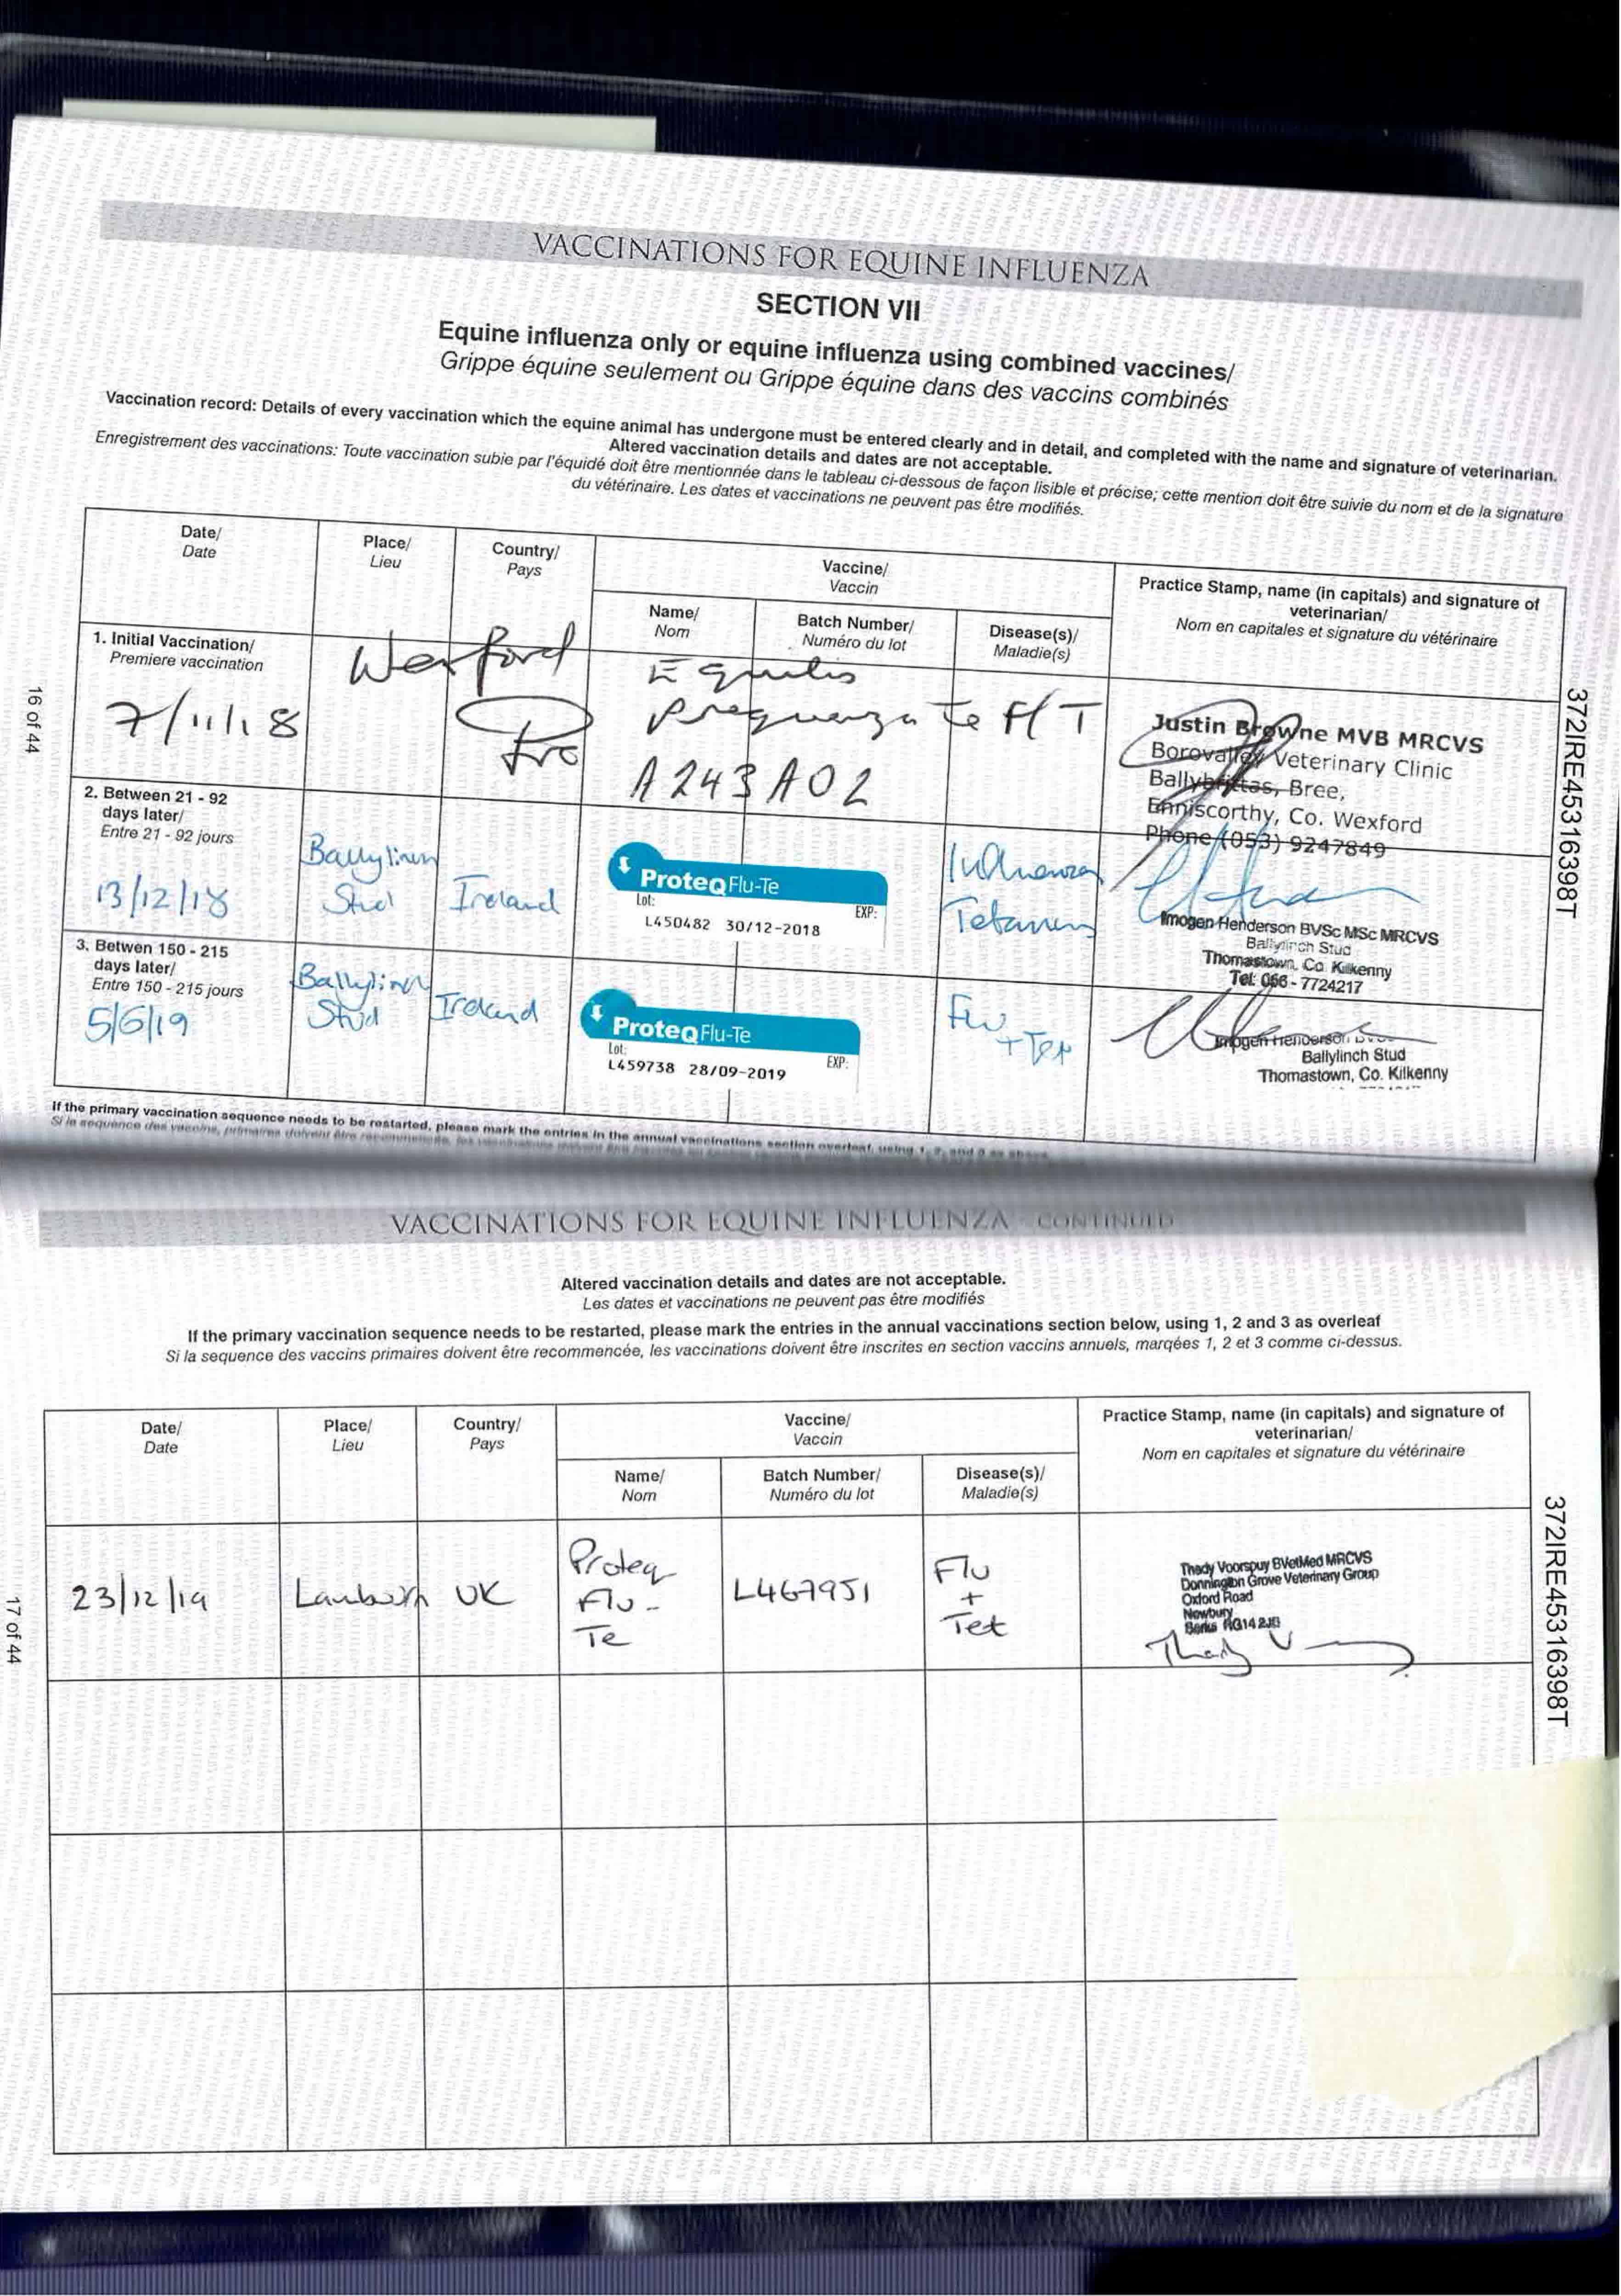 VACCINATIONS FOR EQUINE INFLUENZA
SECTION VII
Equine influenza only or equine influenza using combined vaccines/
Grippe équine seulement ou Grippe équine dans des vaccins combinés
Vaccination record: Details of every vaccination which the equine animal has undergone must be entered clearly and in detail, and completed with the name and signature of veterinarian.
Altered vaccination details and dates are not acceptable.
Enregistrement des vaccinations: Toute vaccination subie par l'équidé doit être mentionnée dans le tableau ci-dessous de façon lisible et précise; cette mention doit être suivie du nom et de la signature
du vétérinaire. Les dates et vaccinations ne peuvent pas être modifiés.
Date/
Date
Place/
Lieu
Country/
Pays
Vaccine/
Vaccin
Name/
Nom
Batch Number/
Numéro du lot
Disease(s)/
Maladie(s)
Practice Stamp, name (in capitals) and signature of
veterinarian/
Nom en capitales et signature du vétérinaire
1. Initial Vaccination/
Premiere vaccination
7/11/18
Wexford
Equilis
Prequenza Te F/T
A243A02
Justin Browne MVB MRCVS
Borovalley Veterinary Clinic
Ballybrittas, Bree,
Enniscorthy, Co. Wexford
Phone (053) 9247849
2. Between 21 - 92
days later/
Entre 21 - 92 jours
13/12/18
Ballylinch
Stud
Ireland
ProteqFlu-Te
Lot:
EXP:
L450482 30/12-2018
Influenza
Tetanus
Imogen Henderson BVSc MSc MRCVS
Ballylinch Stud
Thomastown, Co. Kilkenny
Tel: 056 - 7724217
3. Betwen 150 - 215
days later/
Entre 150 - 215 jours
5/6/19
Ballylinch
Stud
Ireland
ProteqFlu-Te
Lot:
EXP:
L459738 28/09-2019
Flu
+ Tet
Imogen Henderson
Ballylinch Stud
Thomastown, Co. Kilkenny
If the primary vaccination sequence needs to be restarted, please mark the entries in the annual vaccinations section overleaf, using 1, 2, and 3 as above
16 of 44
372IRE45316398T
VACCINATIONS FOR EQUINE INFLUENZA - CONTINUED
Altered vaccination details and dates are not acceptable.
Les dates et vaccinations ne peuvent pas être modifiés
If the primary vaccination sequence needs to be restarted, please mark the entries in the annual vaccinations section below, using 1, 2 and 3 as overleaf
Si la sequence des vaccins primaires doivent être recommencée, les vaccinations doivent être inscrites en section vaccins annuels, marqées 1, 2 et 3 comme ci-dessus.
Date/
Date
Place/
Lieu
Country/
Pays
Vaccine/
Vaccin
Name/
Nom
Batch Number/
Numéro du lot
Disease(s)/
Maladie(s)
Practice Stamp, name (in capitals) and signature of
veterinarian/
Nom en capitales et signature du vétérinaire
23/12/19
Lambourn
UK
Proteq
Flu-
Te
L467951
Flu
+
Tet
Thady Voorspuy BVetMed MRCVS
Donnington Grove Veterinary Group
Oxford Road
Newbury
Berks RG14 2JB
17 of 44
372IRE45316398T